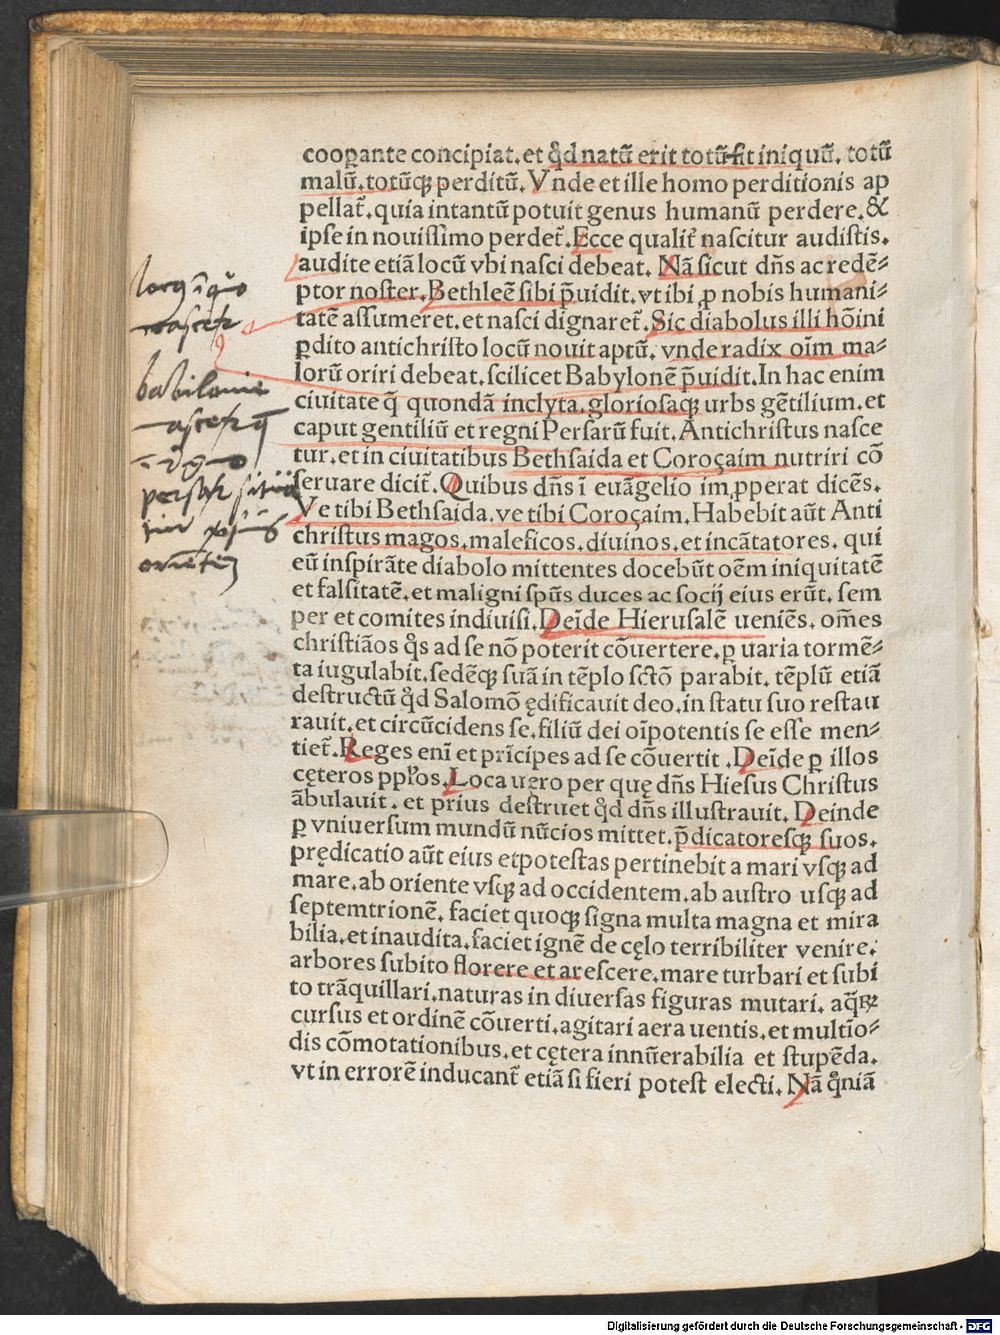 cooꝑante concipiat. et qd̓ natū erit totū fit iniquū. totū
malū. totūqꝫ perditū. Vnde et ille homo perditionis ap
pellat̄. quia intantū potuit genus humanū perdere. &
ipſe in nouiſſimo perdet̄. Ecce qualit̄ naſcitur audiſtis.
audite etiā locū vbi naſci debeat. Nā ſicut dn̄s ac redē⸗
ptor noſter. Bethleē ſibi p̄uidit. vt ibi ꝓ nobis humani⸗
tatē aſſumeret. et naſci dignaret̄. Sic diabolus illi hōini
ꝑdito antichriſto locū nouit aptū. vnde radix oīm ma⸗
lorū oriri debeat. ſcilicet Babylonē p̄uidit. In hac enim
ciuitate q̄ quondā inclyta. glorioſaqꝫ urbs gētilium. et
caput gentiliū et regni Perſarū fuit. Antichriſtus naſce
tur. et in ciuitatibus Bethſaida et Coroçaim nutriri cō
ſeruare dicit̄. Quibus dn̄s ī euāgelio imꝓperat dicēs.
Ve tibi Bethſaida. ve tibi Coroçaim. Habebit aūt Anti
chriſtus magos. maleficos. diuinos. et incātatores. qui
eū inſpirāte diabolo mittentes docebūt oēm iniquitatē
et falſitatē. et maligni ſpūs duces ac ſocij eius erūt. ſem
per et comites indiuiſi. Deīde Hieruſalē ueniēs. om̄es
chriſtiāos qͦs ad ſe nō poterit cōuertere. ꝑ uaria tormē⸗
ta iugulabit. ſedēqꝫ ſuā in tēplo ſctō parabit. tēplū etiā
deſtructū qd̓ Salomō ędificauit deo. in ſtatu ſuo reſtau
rauit. et circūcidens ſe. filiū dei oīpotentis ſe eſſe men⸗
tiet̄. Reges enī et prīcipes ad ſe cōuertit. Deīde ꝑ illos
cęteros pplos. Loca uero per quę dn̄s Hieſus Chriſtus
ābulauit. et prius deſtruet qd̓ dn̄s illuſtrauit. Deinde
ꝑ vniuerſum mundū nūcios mittet. p̄dicatoreſqꝫ ſuos.
prędicatio aūt eius et poteſtas pertinebit a mari vſqꝫ ad
mare. ab oriente vſqꝫ ad occidentem. ab auſtro uſqꝫ ad
ſeptemtrionē. faciet quoqꝫ ſigna multa magna et mira
bilia. et inaudita. faciet ignē de cęlo terribiliter venire.
arbores ſubito florere et areſcere. mare turbari et ſubi
to trāquillari. naturas in diuerſas figuras mutari. aq̄ꝝ
curſus et ordinē cōuerti. agitari aera uentis. et multīo⸗
dis cōmotationibus. et cętera innūerabilia et ſtupēda.
vt in errorē inducant̄ etiā ſi fieri poteſt electi. Nā qͦniā
babilonia
Digitalisierung gefördert durch die Deutsche Forschungsgemeinschaft - DFG